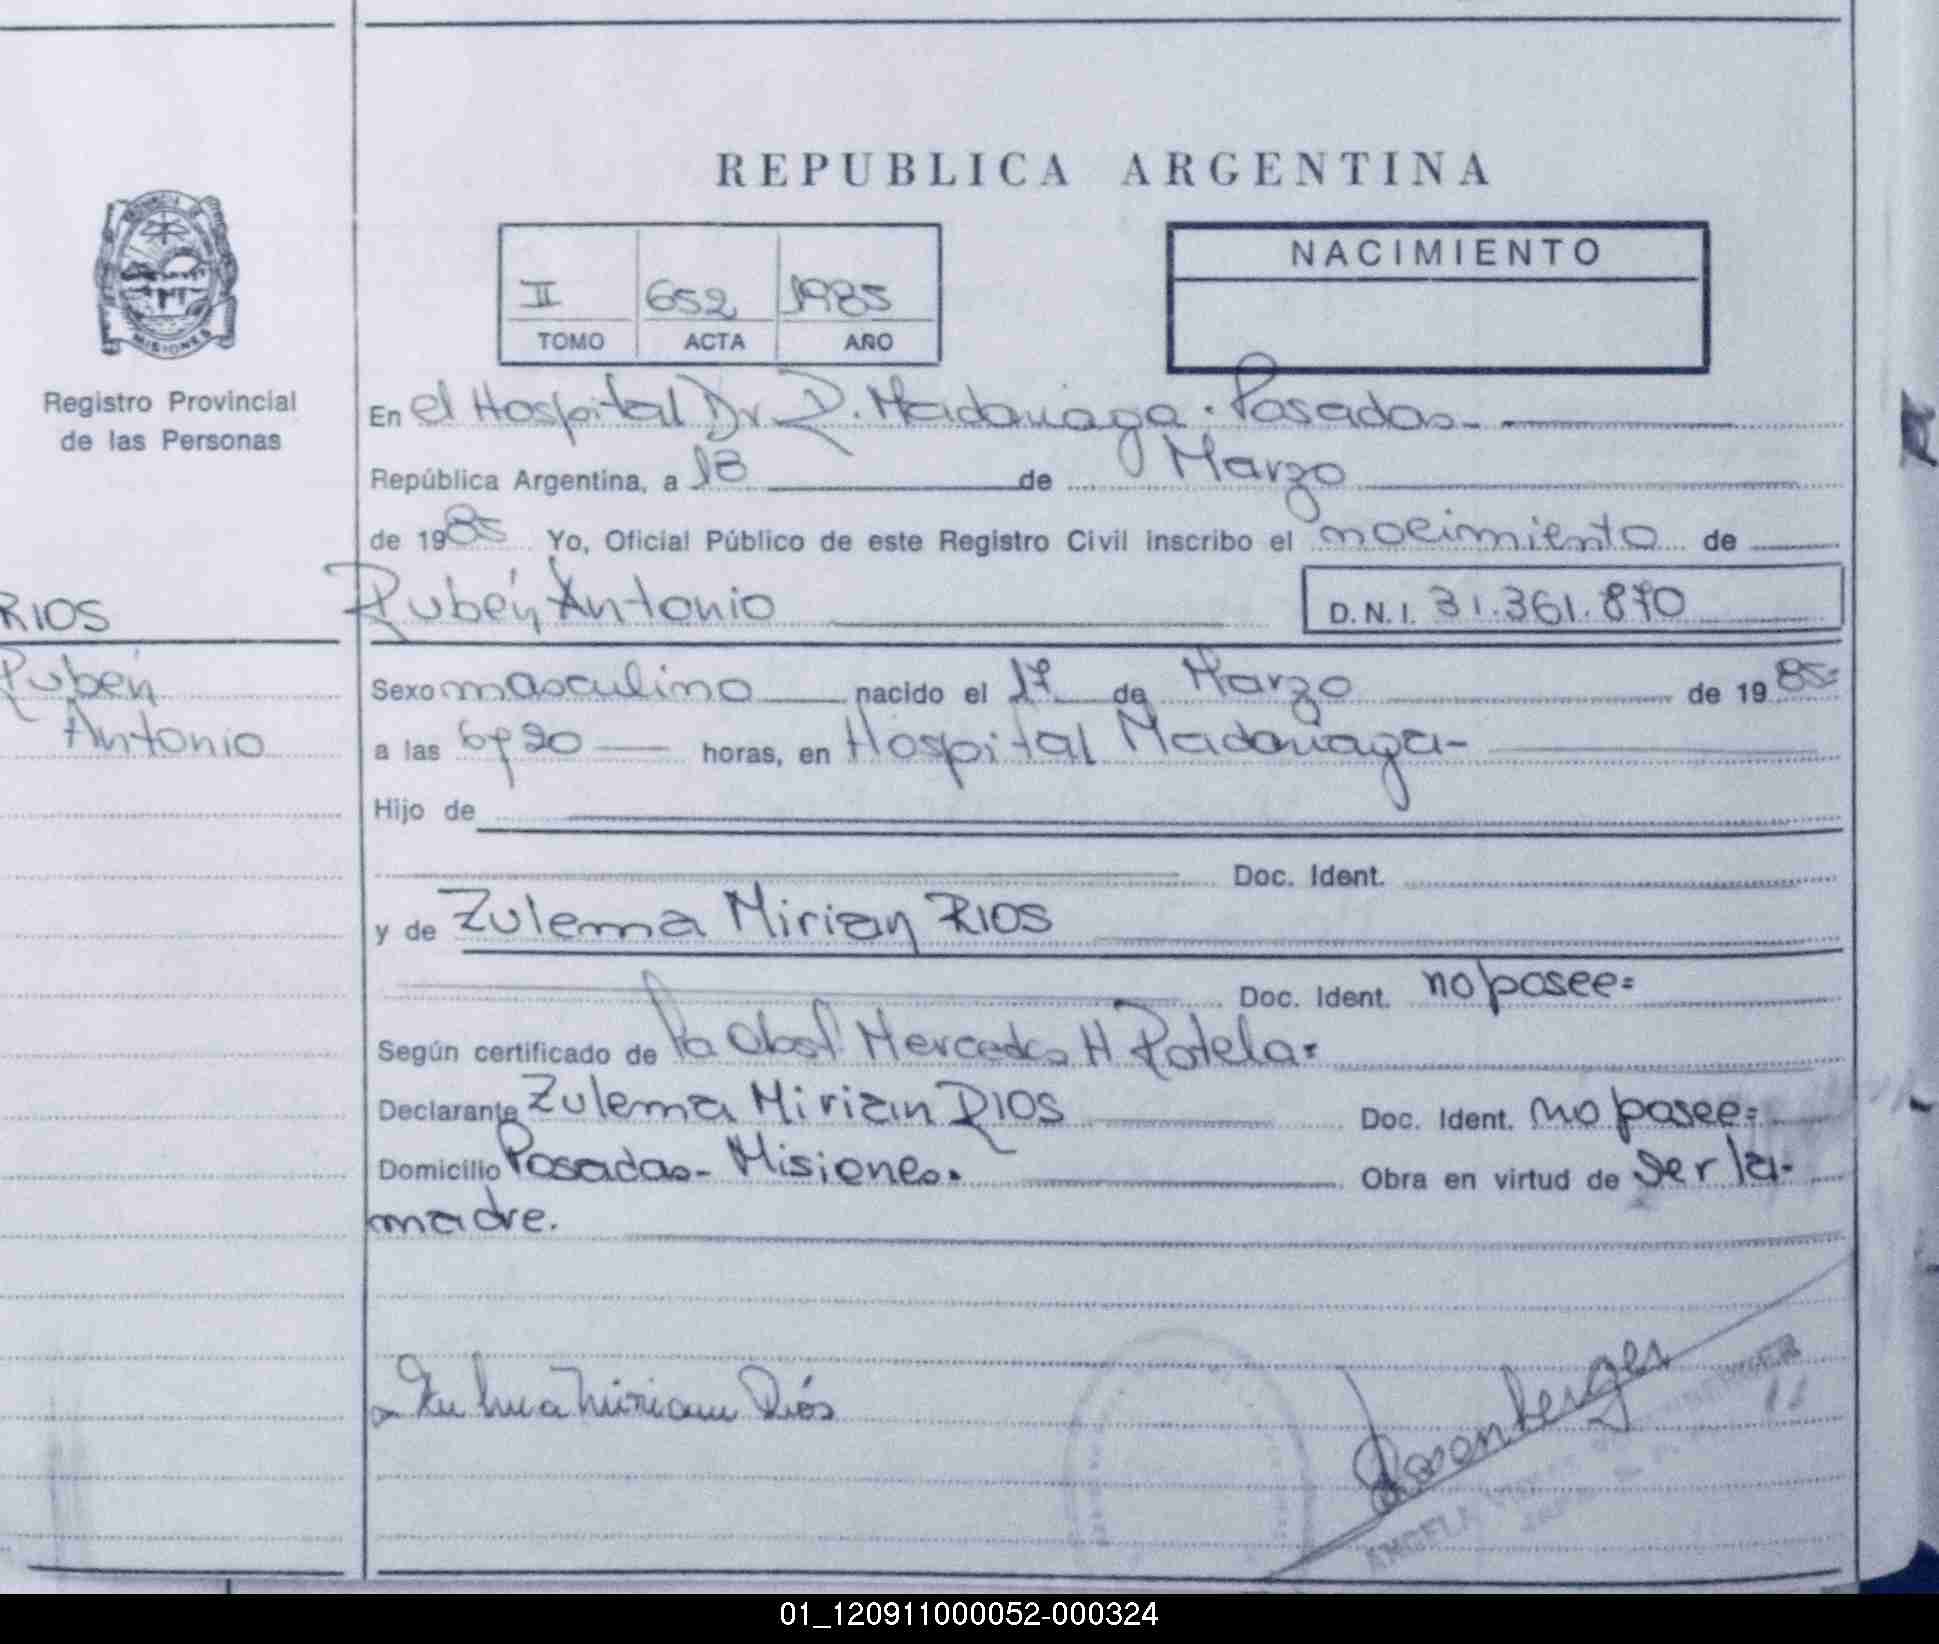 REPUBLICA ARGENTINA
MISIONES
Registro Provincial
de las Personas
II 652 1985
TOMO ACTA AÑO
NACIMIENTO
En el Hospital Dr. R. Madariaga. Posadas
República Argentina, a 18 de Marzo
de 1985 Yo, Oficial Público de este Registro Civil inscribo el nacimiento de
RIOS
Rubén Antonio
D.N.I. 31.361.870
Rubén
Antonio
Sexo masculino nacido el 17 de Marzo de 1985
a las 6y20 horas, en Hospital Madariaga
Hijo de
Doc. Ident.
y de Zulema Mirian RIOS
Doc. Ident. no posee
Según certificado de la Obst Mercedes H Rotela
Declarante Zulema Mirian RIOS Doc. Ident. no posee
Domicilio Posadas - Misiones. Obra en virtud de ser la
madre.
Miriam Ríos
ANGELA
01_120911000052-000324